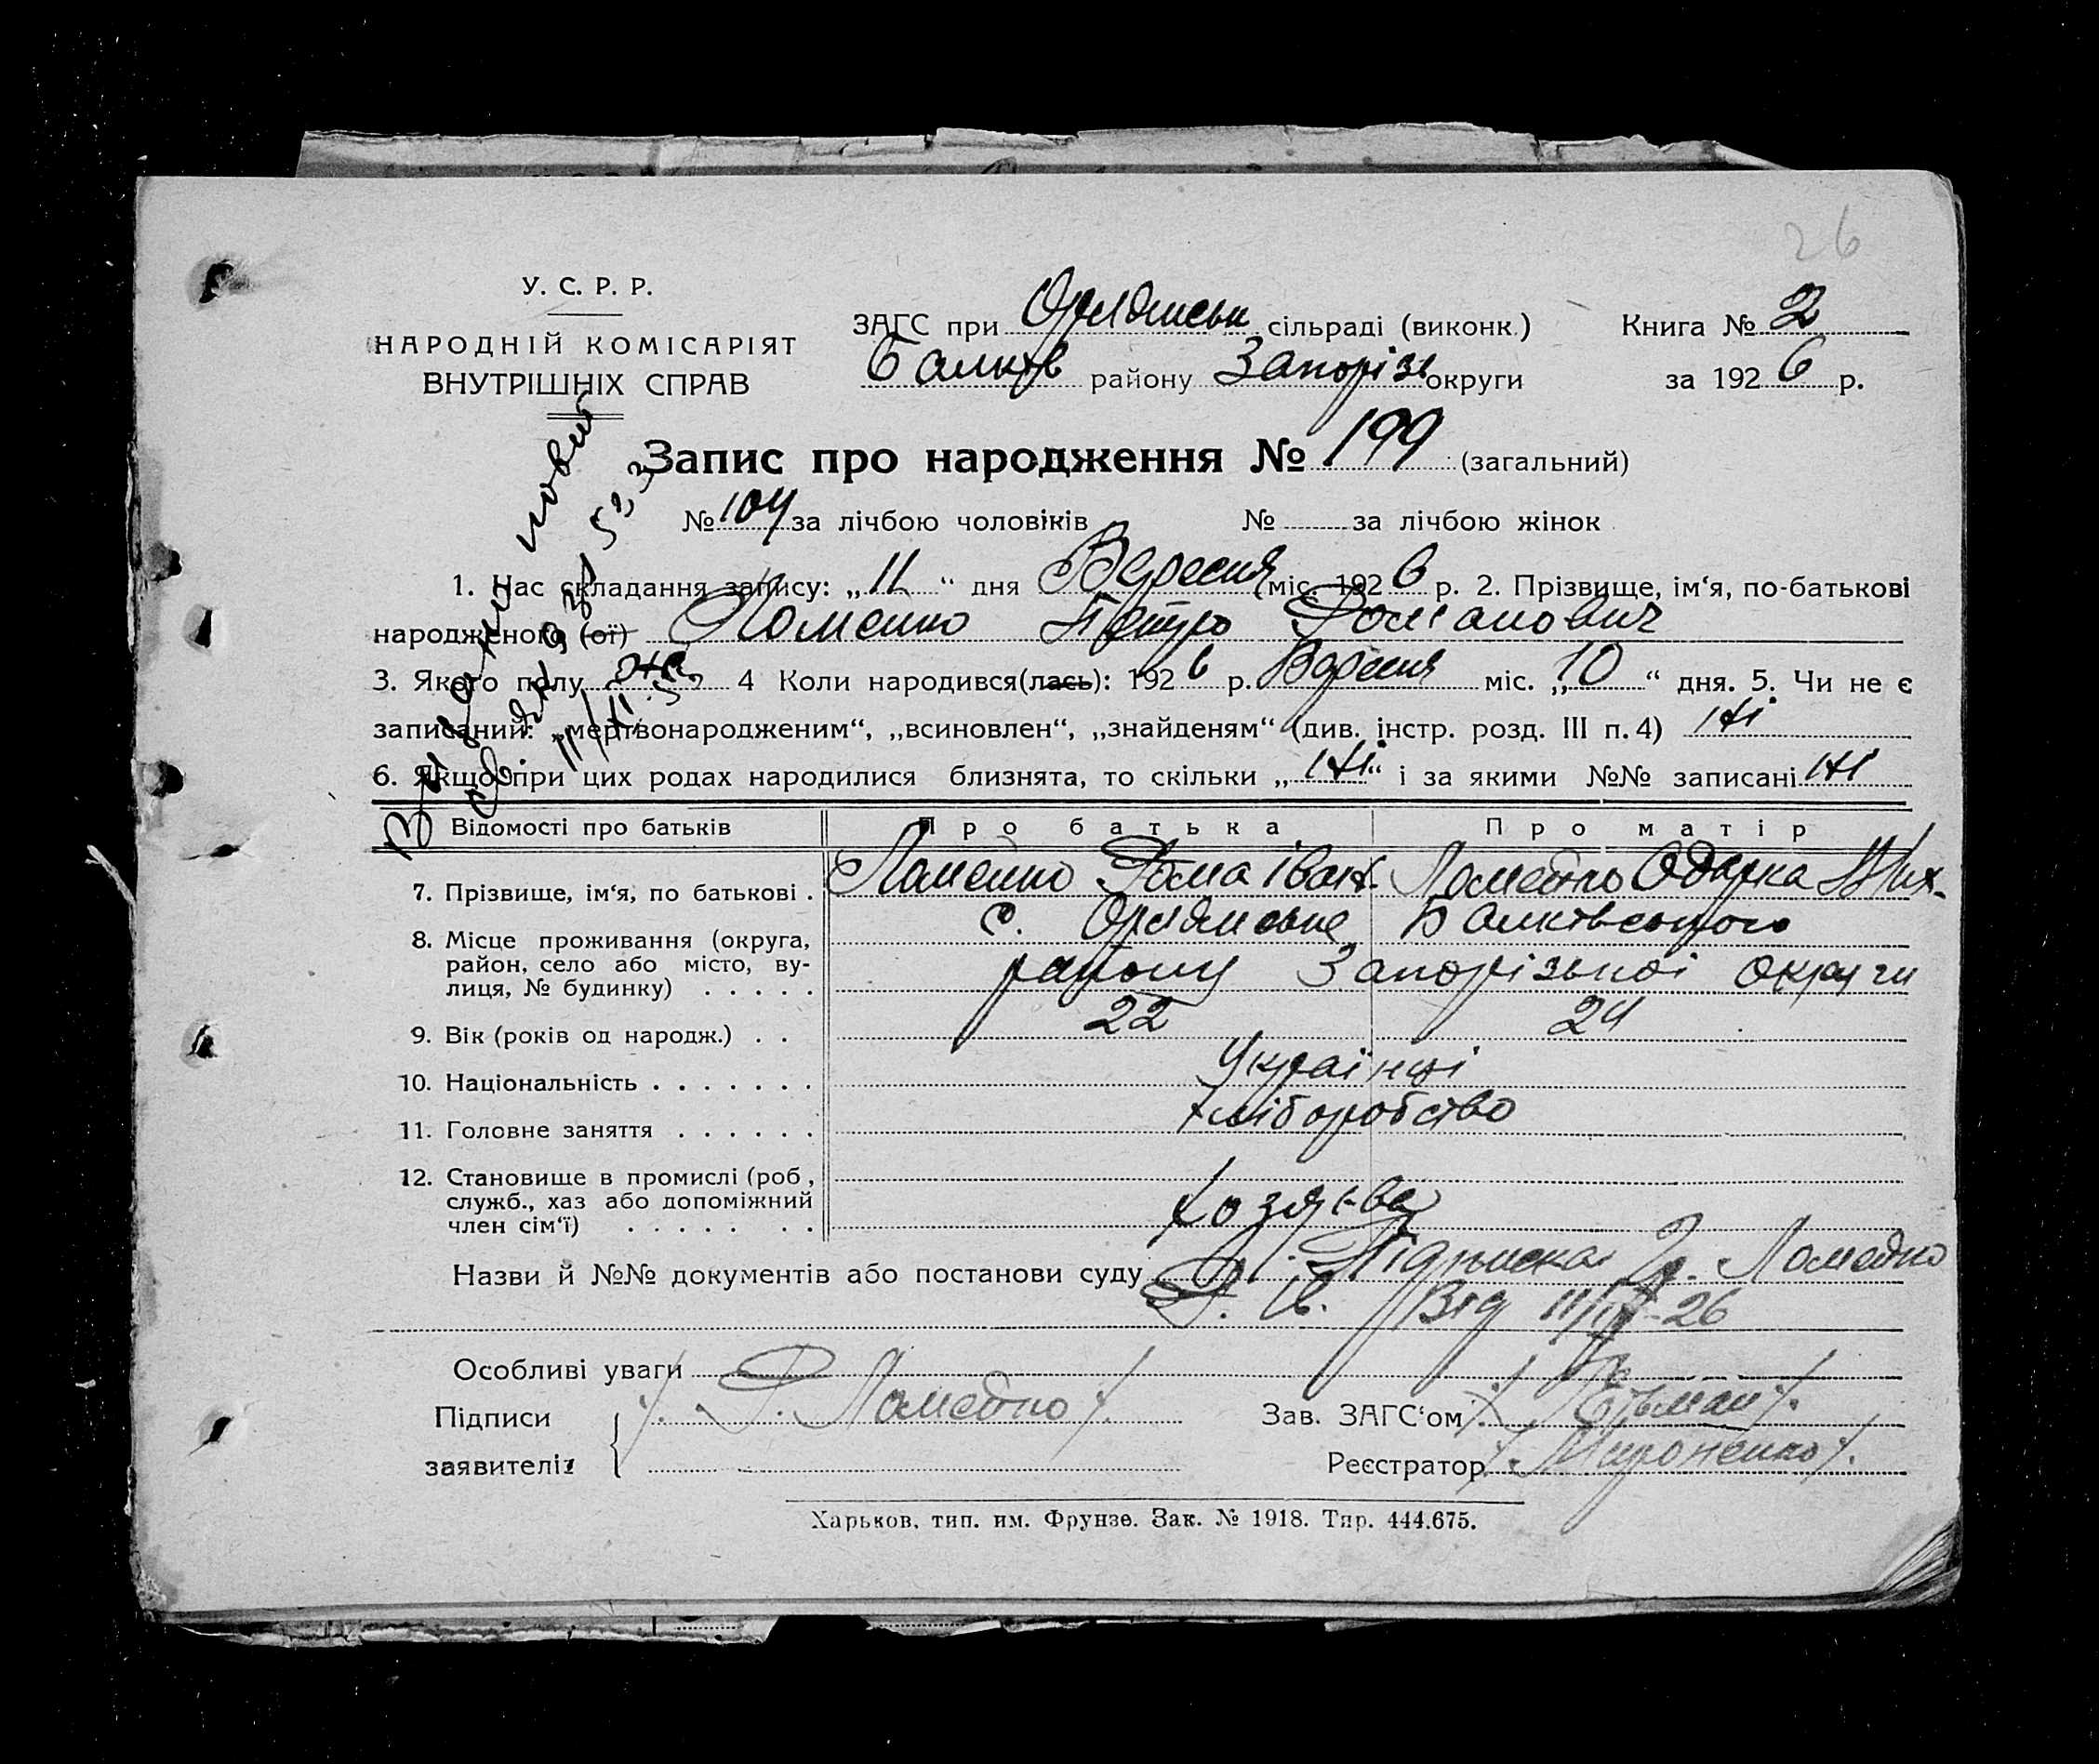 26
У. С. Р. Р.
НАРОДНІЙ КОМІСАРІЯТ
ВНУТРІШНІХ СПРАВ
ЗАГС при Орлянськ сільраді (виконк.)
Балків району Запоріз округи
Книга № 2
за 1926 р.
Запис про народження № 199 (загальний)
№ 104 за лічбою чоловіків № за лічбою жінок
1. Час складання запису: „11“ дня Вересня міс. 1926 р. 2. Прізвище, ім‘я, по-батькові
народженого (ої) Ломейко Петро Романович
3. Якого полу 4 Коли народився(лась): 1926 р. Вересня міс. „10“ дня. 5. Чи не є
записаний: „мертвонародженим“, „всиновлен“, „знайденям“ (див. інстр. розд. III п. 4) Ні
6. Якщо при цих родах народилися близнята, то скільки „Ні“ і за якими №№ записані Ні
Відомості про батьків Про батька Про матір
7. Прізвище, ім‘я, по батькові . Ломейко Рома Іван. Ломейко Одарка Мих.
8. Місце проживання (округа, район, село або місто, вулиця, № будинку) . . . . . с. Орлянське Балківського
району Запорізької округи
9. Вік (років од народж.) . . 22 24
10. Національність . . . . . . . Українці
11. Головне заняття . . . . . . Хліборобство
12. Становище в промислі (роб, служб., хаз або допоміжний член сім‘ї) . . . . . . .
Назви й №№ документів або постанови суду Підписка Гр. Ломейко
Р. Ів. Від 11/IX-26
Особливі уваги
Підписи заявителів Р. Ломейко
Зав. ЗАГС‘ом Гетьман
Реєстратор Мироненко
Харьков, тип. им. Фрунзе. Зак. № 1918. Тир. 444.675.